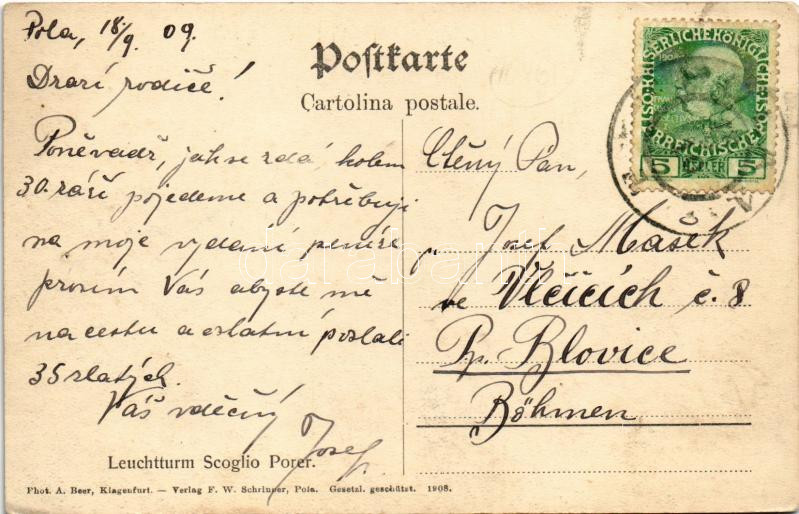 Pola, 18/9. 09.
Drazí rodiče!
Poněvadž, jak se zdá, kolem
30. září pojedeme a potřebuji
na moje vydaní peníze
prosím Vás abyste mě
na cestu a ostatní poslali
35 zlatých.
Váš vděčný
Josef.
Leuchtturm Scoglio Porer.
Phot. A. Beer, Klagenfurt. — Verlag F. W. Schrinner, Pola. Gesetzl. geschützt. 1908.
Postkarte
Cartolina postale.
Ctěný Pan,
Josef Mašek
ve Vlčicích č. 8
Pp. Blovice
Böhmen
KAISERLICHEKÖNIGLICHE ÖSTERREICHISCHE POST
5 HELLER 5
darabanth